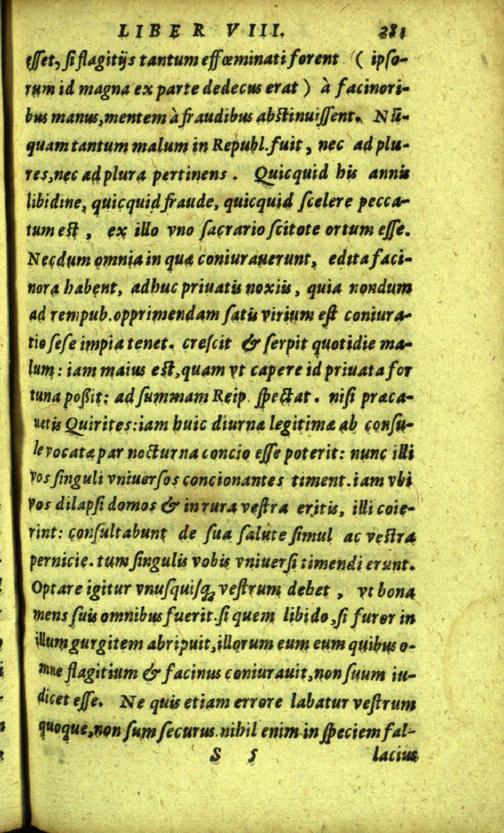 LIBER VIII. 281
esset, si flagitijs tantum effœminati forent ( ipso-
rum id magna ex parte dedecus erat ) à facinori-
bus manus, mentem à fraudibus abstinuissent. Nũ-
quam tantum malum in Republ. fuit, nec ad plu-
res, nec ad plura pertinens. Quicquid his annis
libidine, quicquid fraude, quicquid scelere pecca-
tum est, ex illo vno sacrario scitote ortum esse.
Necdum omnia in quæ coniurauerunt, edita faci-
nora habent, adhuc priuatis noxiis, quia nondum
ad rempub. opprimendam satis virium est coniura-
tio sese impia tenet. crescit & serpit quotidie ma-
lum: iam maius est, quam vt capere id priuata for
tuna poßit: ad summam Reip. spectat. nisi præca-
uetis Quirites: iam huic diurnæ legitimæ ab consu-
le vocatæ par nocturna concio esse poterit: nunc illi
vos singuli vniuersos concionantes timent. iam vbi
vos dilapsi domos & in rura vestra eritis, illi coie-
rint: consultabunt de sua salute simul ac vestra
pernicie. tum singulis vobis vniuersi timendi erunt.
Optare igitur vnusquisq; vestrum debet, vt bona
mens suis omnibus fuerit. si quem libido, si furor in
illum gurgitem abripuit, illorum eum eum quibus o-
mne flagitium & facinus coniurauit, non suum iu-
dicet esse. Ne quis etiam errore labatur vestrum
quoque, non sum securus. nihil enim in speciem fal-
S 5 lacius